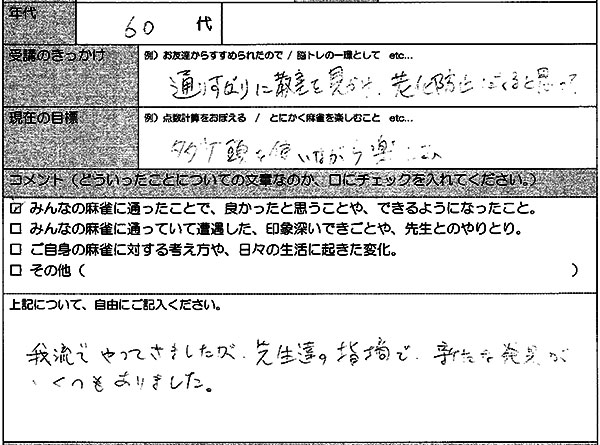 年代 60 代
受講のきっかけ 例）お友達からすすめられたので / 脳トレの一環として etc...
通りすがりに教室を見かけ、老化防止になると思って
現在の目標 例）点数計算をおぼえる / とにかく麻雀を楽しむこと etc...
頭を使いながら楽しむ
コメント（どういったことについての文章なのか、口にチェックを入れてください。）
☑ みんなの麻雀に通ったことで、良かったと思うことや、できるようになったこと。
□ みんなの麻雀に通っていて遭遇した、印象深いできごとや、先生とのやりとり。
□ ご自身の麻雀に対する考え方や、日々の生活に起きた変化。
□ その他（ ）
上記について、自由にご記入ください。
我流でやってきましたが、先生達の指摘で、新たな発見が
いくつもありました。